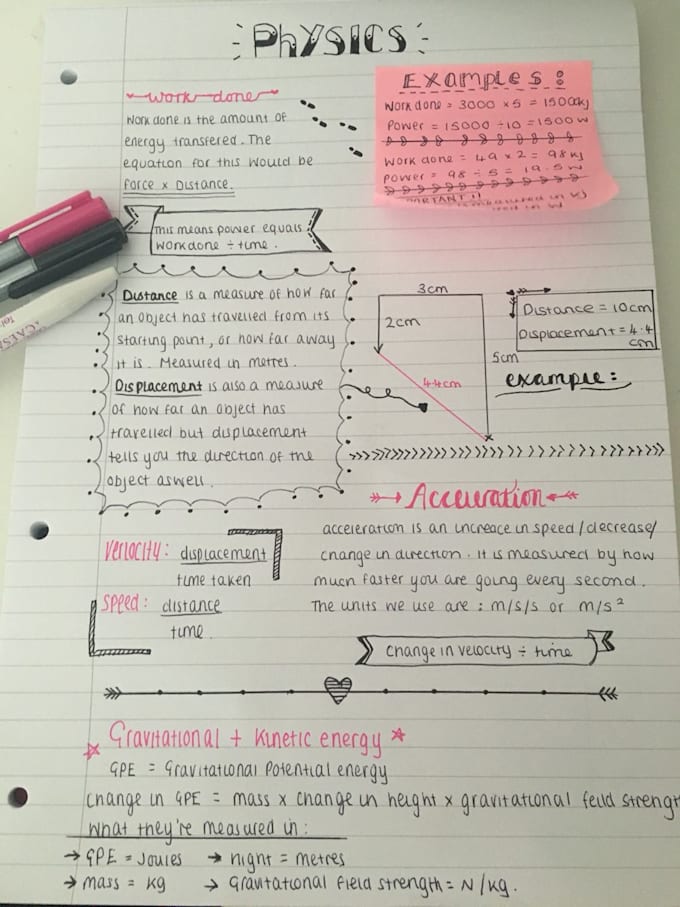 Physics
work done
Work done is the amount of
energy transfered. The
equation for this would be
force x Distance.
This means power equals
work done ÷ time.
Examples:
Work done = 3000 x 5 = 15000kj
Power = 15000 ÷ 10 = 1500 W
Work done = 49 x 2 = 98 KJ
Power = 98 ÷ 5 = 19.5 W
Distance is a measure of how far
an object has travelled from its
starting point, or how far away
it is. Measured in metres.
Displacement is also a measure
of how far an object has
travelled but displacement
tells you the direction of the
object aswell.
3cm
2cm
5cm
4.4cm
Distance = 10cm
Displacement = 4.4
cm
example:
Accleration
acceleration is an increace in speed/decrease/
change in direction. It is measured by how
much faster you are going every second.
The units we use are: m/s/s or m/s²
Change in velocity ÷ time
Verlocity: displacement
time taken
Speed: distance
time.
Gravitational + Kinetic energy
GPE = Gravitational Potential energy
Change in GPE = mass x change in height x gravitational feild strengt
What they're measured in:
→ GPE = Joules → hight = metres
→ mass = kg → Gravitational field strength = N/kg.